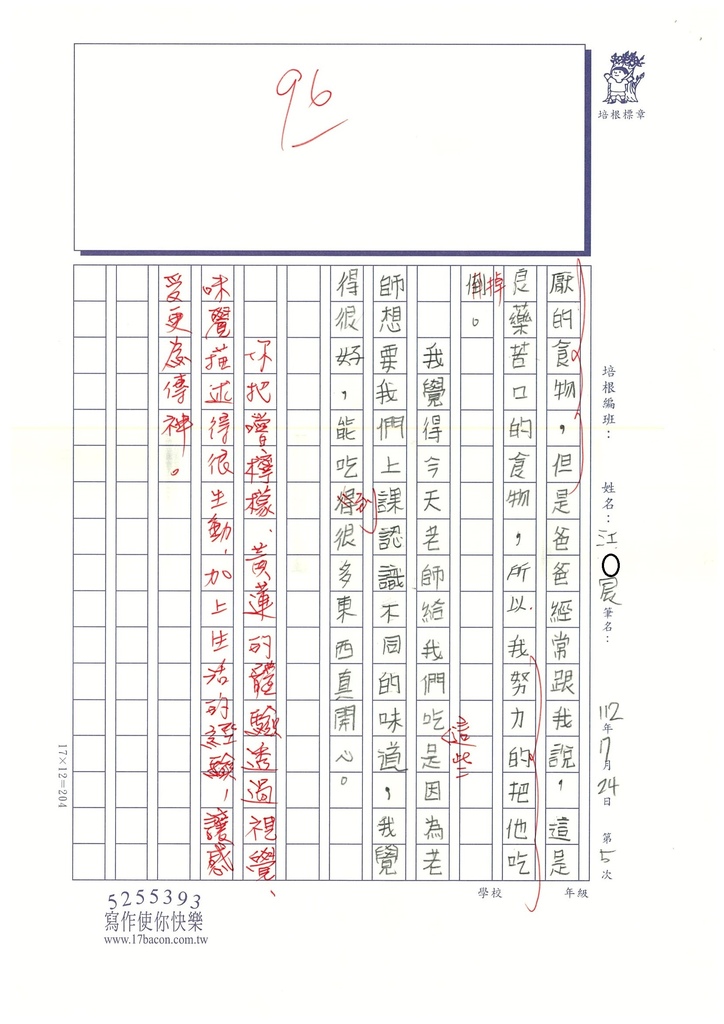 96
培根標章
培根編班：
姓名：江〇宸
筆名：
112年7月24日
第5次
年級
學校
厭的食物，但是爸爸經常跟我說，這是
良藥苦口的食物，所以我努力的把他吃
掉。
我覺得今天老師給我們吃這些是因為老
師想要我們上課認識不同的味道，我覺
得很好，能吃到很多東西真開心。
你把嚐檸檬、黃蓮的體驗透過視覺、
味覺描述得很生動，加上生活的經驗，讓感
受更為傳神。
17×12=204
5255393
寫作使你快樂
www.17bacon.com.tw